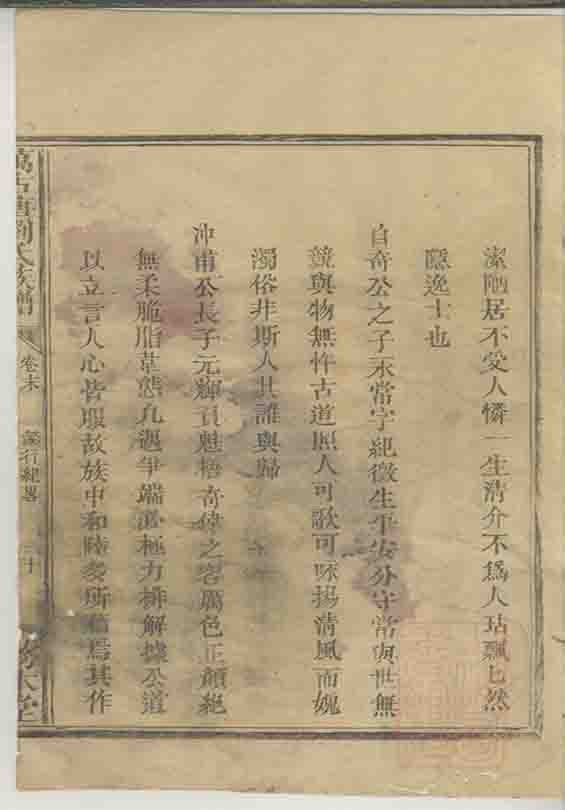 潔陋居不受人憐一生清介不爲人玷飄匕然
隱逸士也
自奇公之子永常字紀微生平安分守常與世無
競與物無忤古道照人可歌可咏揚清風而媿
濁俗非斯人其誰與歸
沖甫公長子元輝頁魁梧奇偉之容厲色正顏絕
無柔脆脂韋態凡遇爭端必極力排解據公道
以立言人心皆服故族中和睦多所賴焉其作
劉氏族譜
卷末
懿行紀畧
三十